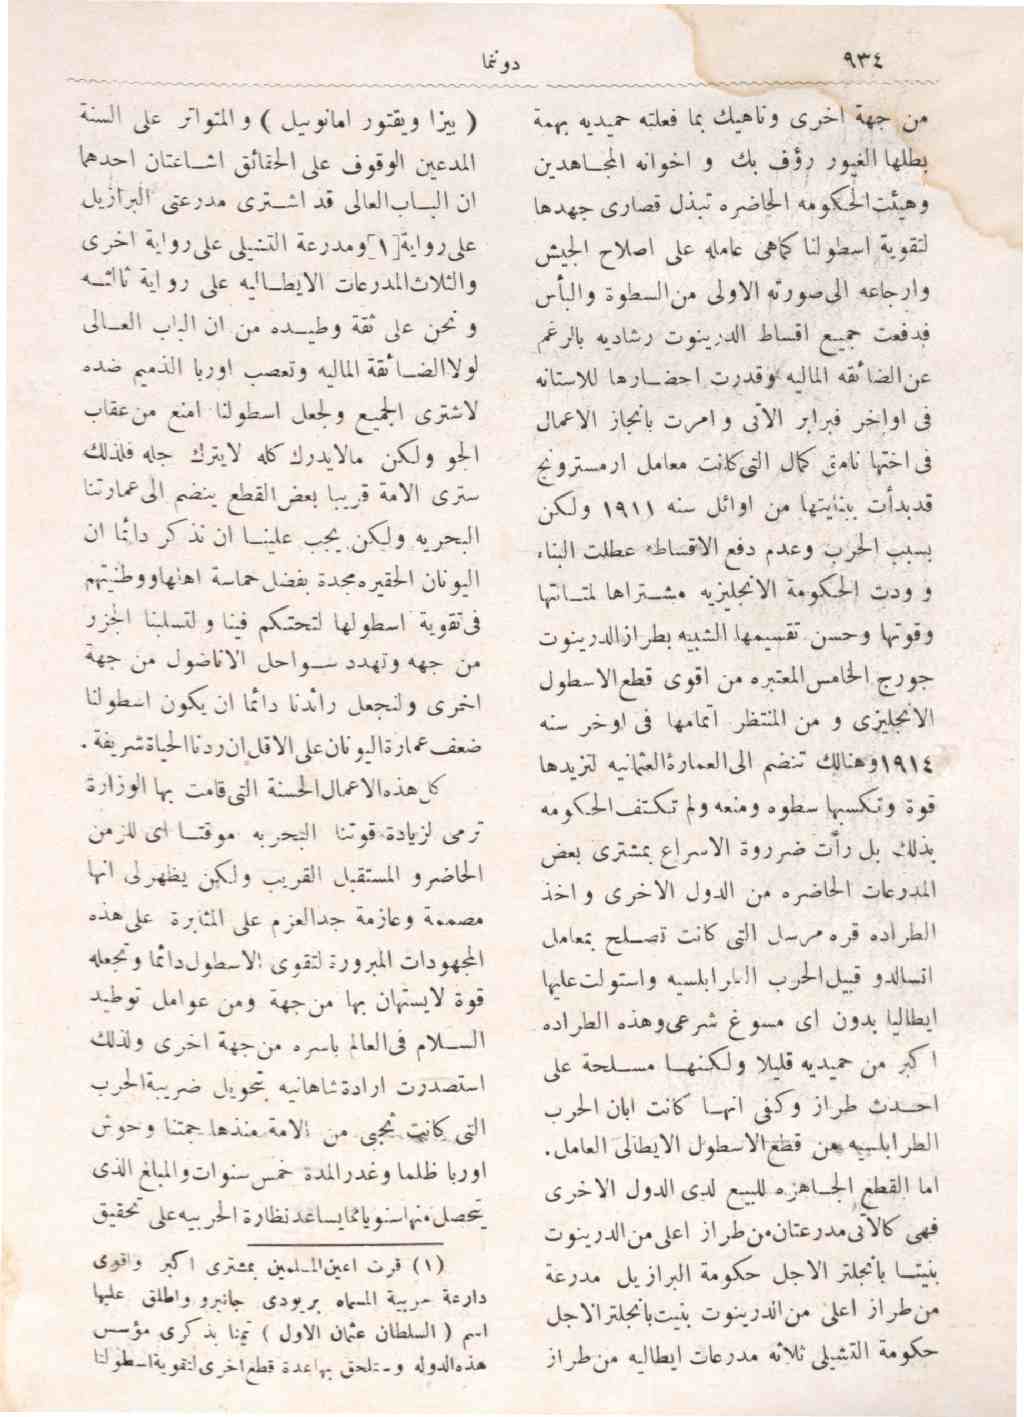 ٩٣٤
دونما
من جهة اخرى وناهيك بما فعلته حميديه بهمة
بطلها الغيور رؤف بك و اخوانه المجاهدين
وهيئت الحكومه الحاضره تبذل قصارى جهدها
لتقوية اسطولنا كماهى عامله على اصلاح الجيش
وارجاعه الى صورته الاولى من السطوة والبأس
فدفعت جميع اقساط الدرينوت رشاديه بالرغم
عن الضائقه الماليه وقدرت احضارها للاستانه
فى اواخر فبراير الآتى وامرت بانجاز الاعمال
فى اختها نامق كمال التى كانت معامل ارمسترونج
قدبدأت ببنايتها من اوائل سنه ١٩١١ ولكن
بسبب الحرب وعدم دفع الاقساط عطلت البناء
و ودت الحكومة الانجليزيه مشتراها لمتانتها
وقوتها وحسن تقسيمها الشبيه بطراز الدرينوت
جورج الخامس المعتبره من اقوى قطع الاسطول
الانجليزى و من المنتظر اتمامها فى اوخر سنه
١٩١٤ وهنالك تنضم الى العمارة العثمانيه لتزيدها
قوة وتكسبها سطوه ومنعه ولم تكتف الحكومه
بذلك بل رأت ضرورة الاسراع بمشترى بعض
المدرعات الحاضره من الدول الاخرى و اخذ
الطراده قره مرسل التى كانت تصلح بمعامل
انسالدو قبيل الحرب الطرابلسيه واستولت عليها
ايطاليا بدون اى مسوغ شرعى وهذه الطراده
اكبر من حميديه قليلا ولكنها مسلحة على
احدث طراز وكفى انها كانت ابان الحرب
الطرابلسيه من قطع الاسطول الايطالى العامل .
اما القطع الجاهزه للبيع لدى الدول الاخرى
فهى كالآتى مدرعتان من طراز اعلى من الدرينوت
بنيتا بانجلتر الاجل حكومة البرازيل مدرعة
من طراز اعلى من الدرينوت بنيت بانجلتر الاجل
حكومة التشيلى ثلاثه مدرعات ايطاليه من طراز
( بيزا ويقتور امانوئيل ) والمتواتر على السنة
المدعين الوقوف على الحقائق اشاعتان احدهما
ان الباب العالى قد اشترى مدرعتى البرازيل
على رواية [١] ومدرعة التشيلى على رواية اخرى
والثلاث المدرعات الايطاليه على رواية ثالثه
و نحن على ثقة وطيده من ان الباب العالى
لولا الضائقة الماليه وتعصب اوربا الذميم ضده
لاشترى الجميع ولجعل اسطولنا امنع من عقاب
الجو ولكن مالايدرك كله لايترك جله فلذلك
سترى الامة قريبا بعض القطع ينضم الى عمارتنا
البحريه ولكن يجب علينا ان نذكر دائما ان
اليونان الحقيره مجدة بفضل حماسة اهلها ووطنيتهم
فى تقوية اسطولها لتحتكم فينا ولتسلبنا الجزر
من جهه وتهدد سواحل الاناضول من جهة
اخرى ولنجعل رائدنا دائما ان يكون اسطولنا
ضعف عمارة اليونان على الاقل ان ردنا الحياة شريفة .
كل هذه الاعمال الحسنة التى قامت بها الوزارة
ترمى لزيادة قوتنا البحريه موقتا اى للزمن
الحاضر و المستقبل القريب ولكن يظهر لى انها
مصممة وعازمة جد العزم على المثابرة على هذه
المجهودات المبرورة لتقوى الاسطول دائما وتجعله
قوة لايستهان بها من جهة ومن عوامل توطيد
السلام فى العالم باسره من جهة اخرى ولذلك
استصدرت ارادة شاهانيه بتحويل ضريبة الحرب
التى كانت تجبى من الامة منذ هاجمتنا وحوش
اوربا ظلما وغدر المدة خمس سنوات والمبلغ الذى
يتحصل منها سنويا مما يساعد نظارة الحربيه على تحقيق
(١) قرت اعين المسلمين بمشترى اكبر واقوى
دارعة حربية المسماه بريودى جانيرو واطلق عليها
اسم ( السلطان عثمان الاول ) تيمنا بذكرى مؤسس
هذه الدوله وستلحق بها عدة قطع اخرى لتقوية اسطولنا